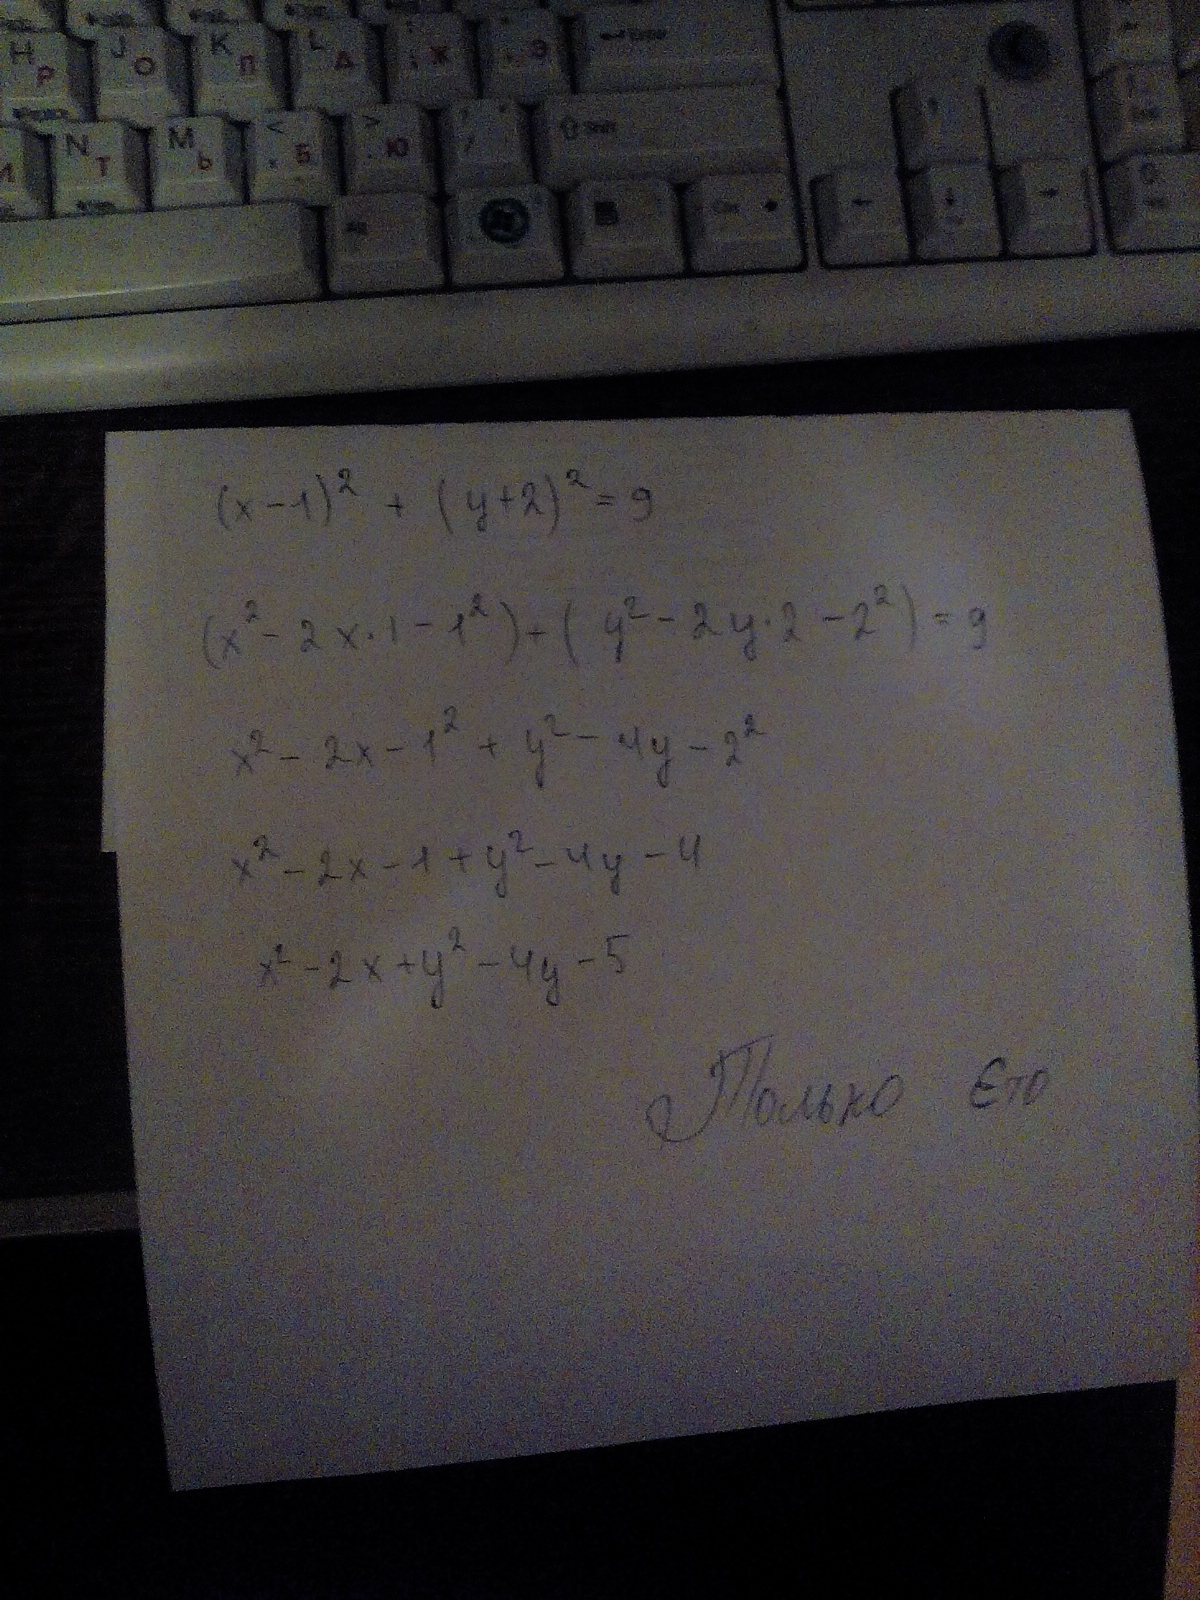 H Р J О K П L Д : ; Ж " Э Enter
И N Т M Ь < Б > Ю / Shift
(x-1)² + (y+2)² = 9
(x² - 2x·1 - 1²) + (y² - 2y·2 - 2²) = 9
x² - 2x - 1² + y² - 4y - 2²
x² - 2x - 1 + y² - 4y - 4
x² - 2x + y² - 4y - 5
Только Єто